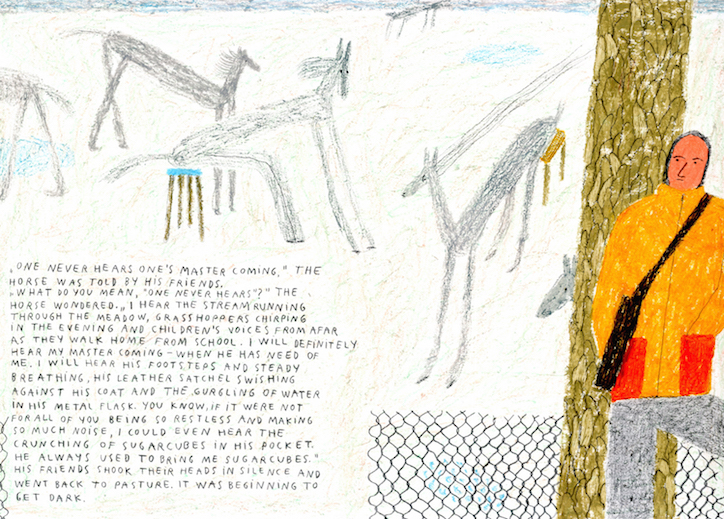 „ONE NEVER HEARS ONE'S MASTER COMING." THE
HORSE WAS TOLD BY HIS FRIENDS.
„WHAT DO YOU MEAN, "ONE NEVER HEARS"?" THE
HORSE WONDERED. „I HEAR THE STREAM RUNNING
THROUGH THE MEADOW, GRASSHOPPERS CHIRPING
IN THE EVENING AND CHILDREN'S VOICES FROM AFAR
AS THEY WALK HOME FROM SCHOOL. I WILL DEFINITELY
HEAR MY MASTER COMING – WHEN HE HAS NEED OF
ME. I WILL HEAR HIS FOOTSTEPS AND STEADY
BREATHING, HIS LEATHER SATCHEL SWISHING
AGAINST HIS COAT AND THE GURGLING OF WATER
IN HIS METAL FLASK. YOU KNOW, IF IT WERE NOT
FOR ALL OF YOU BEING SO RESTLESS AND MAKING
SO MUCH NOISE, I COULD EVEN HEAR THE
CRUNCHING OF SUGARCUBES IN HIS POCKET.
HE ALWAYS USED TO BRING ME SUGARCUBES."
HIS FRIENDS SHOOK THEIR HEADS IN SILENCE AND
WENT BACK TO PASTURE. IT WAS BEGINNING TO
GET DARK.